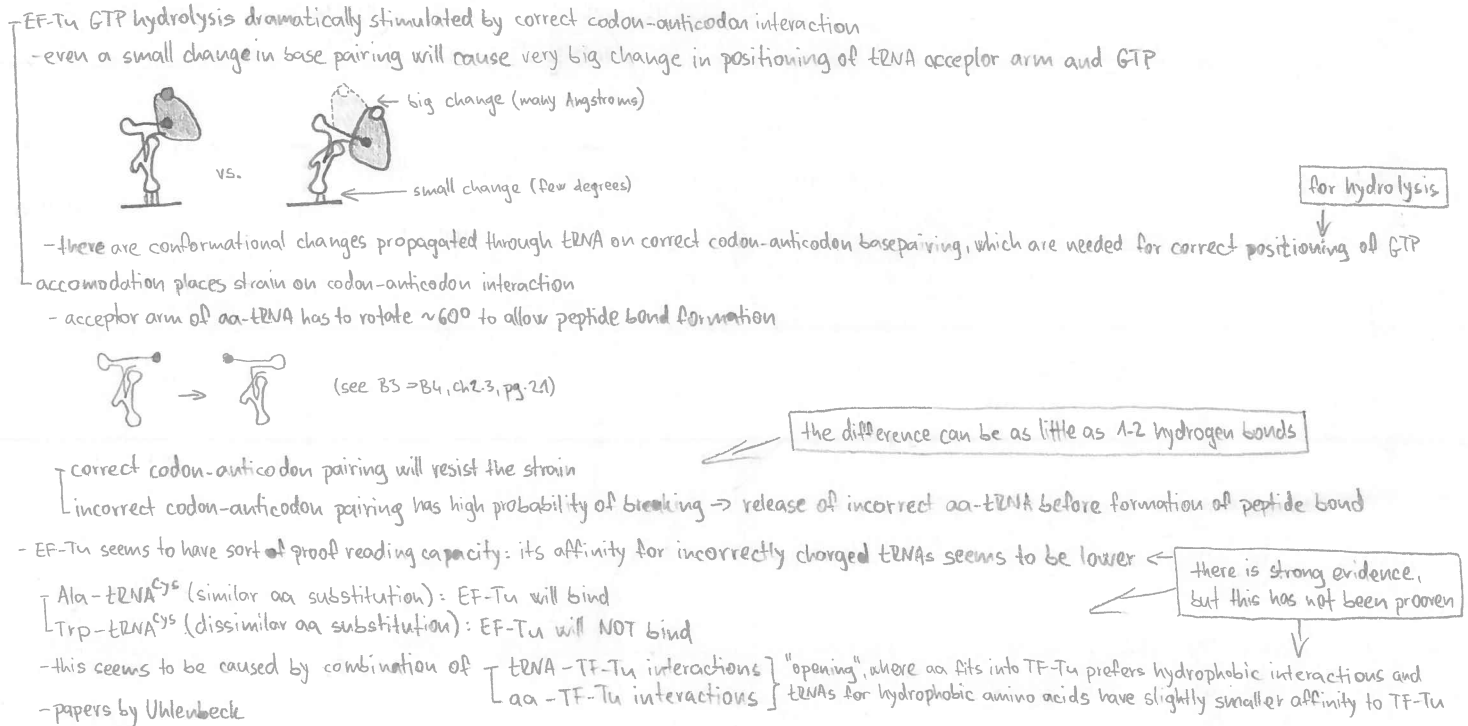 EF-Tu GTP hydrolysis dramatically stimulated by correct codon-anticodon interaction
-even a small change in base pairing will cause very big change in positioning of tRNA acceplor arm and GTP
big change (many Angstroms)
vs.
small change (few degrees)
for hydrolysis
-there are conformational changes propagated through tRNA on correct codon-anticodon basepairing, which are needed for correct positioning of GTP
accomodation places strain on codon-anticodon interaction
- acceptor arm of aa-tRNA has to rotate ~60° to allow peptide bond formation
(see B3⇒B4, ch2.3, pg.21)
the difference can be as little as 1-2 hydrogen bonds
correct codon-anticodon pairing will resist the strain
incorrect codon-anticodon pairing has high probability of breaking → release of incorrect aa-tRNA before formation of peptide bond
- EF-Tu seems to have sort of proof reading capacity: its affinity for incorrectly charged tRNAs seems to be lower
there is strong evidence,
but this has not been prooven
Ala-tRNA^Cys (similar aa substitution): EF-Tu will bind
Trp-tRNA^Cys (dissimilar aa substitution): EF-Tu will NOT bind
-this seems to be caused by combination of
tRNA-TF-Tu interactions
aa-TF-Tu interactions
"opening", where aa fits into TF-Tu prefers hydrophobic interactions and
tRNAs for hydrophobic amino acids have slightly smaller affinity to TF-Tu
-papers by Uhlenbeck